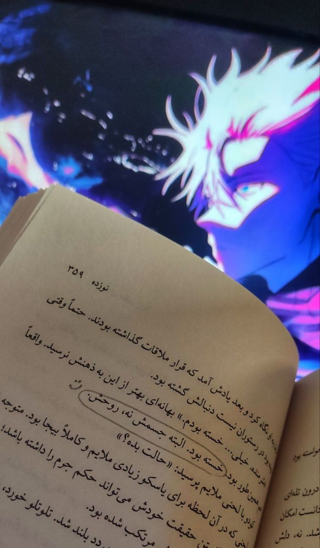 نوزده ۳۵۹
نگاه کرد و بعد یادش آمد که قرار ملاقات گذاشته بودند. حتماً وقتی
در رستوران نیست دنبالش گشته بود.
خیلی... خسته بودم.» بهانه‌ای بهتر از این به ذهنش نرسید. واقعاً
همین طور بود. خسته بود. البته جسمش نه، روحش.
با لحنی ملایم پرسید: «حالت بده؟»
لحنی که در آن لحظه برای پاسکو زیادی ملایم و کاملاً بیجا بود. متوجه
حقیقت خودش می‌تواند حکم جرم را داشته باشد؛
مرتکب شده بود.
درد بلند شد. تلوتلو خورد،
درون تله‌ای
امکان
نه، دلش